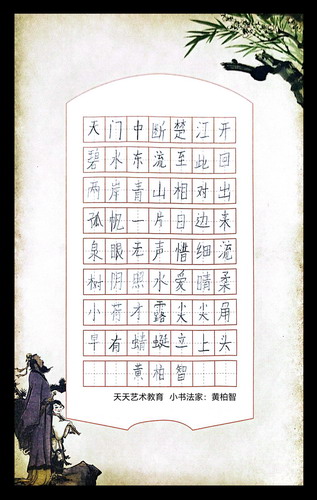 天门中断楚江开
碧水东流至此回
两岸青山相对出
孤帆一片日边来
泉眼无声惜细流
树阴照水爱晴柔
小荷才露尖尖角
早有蜻蜓立上头
黄柏智
天天艺术教育 小书法家：黄柏智